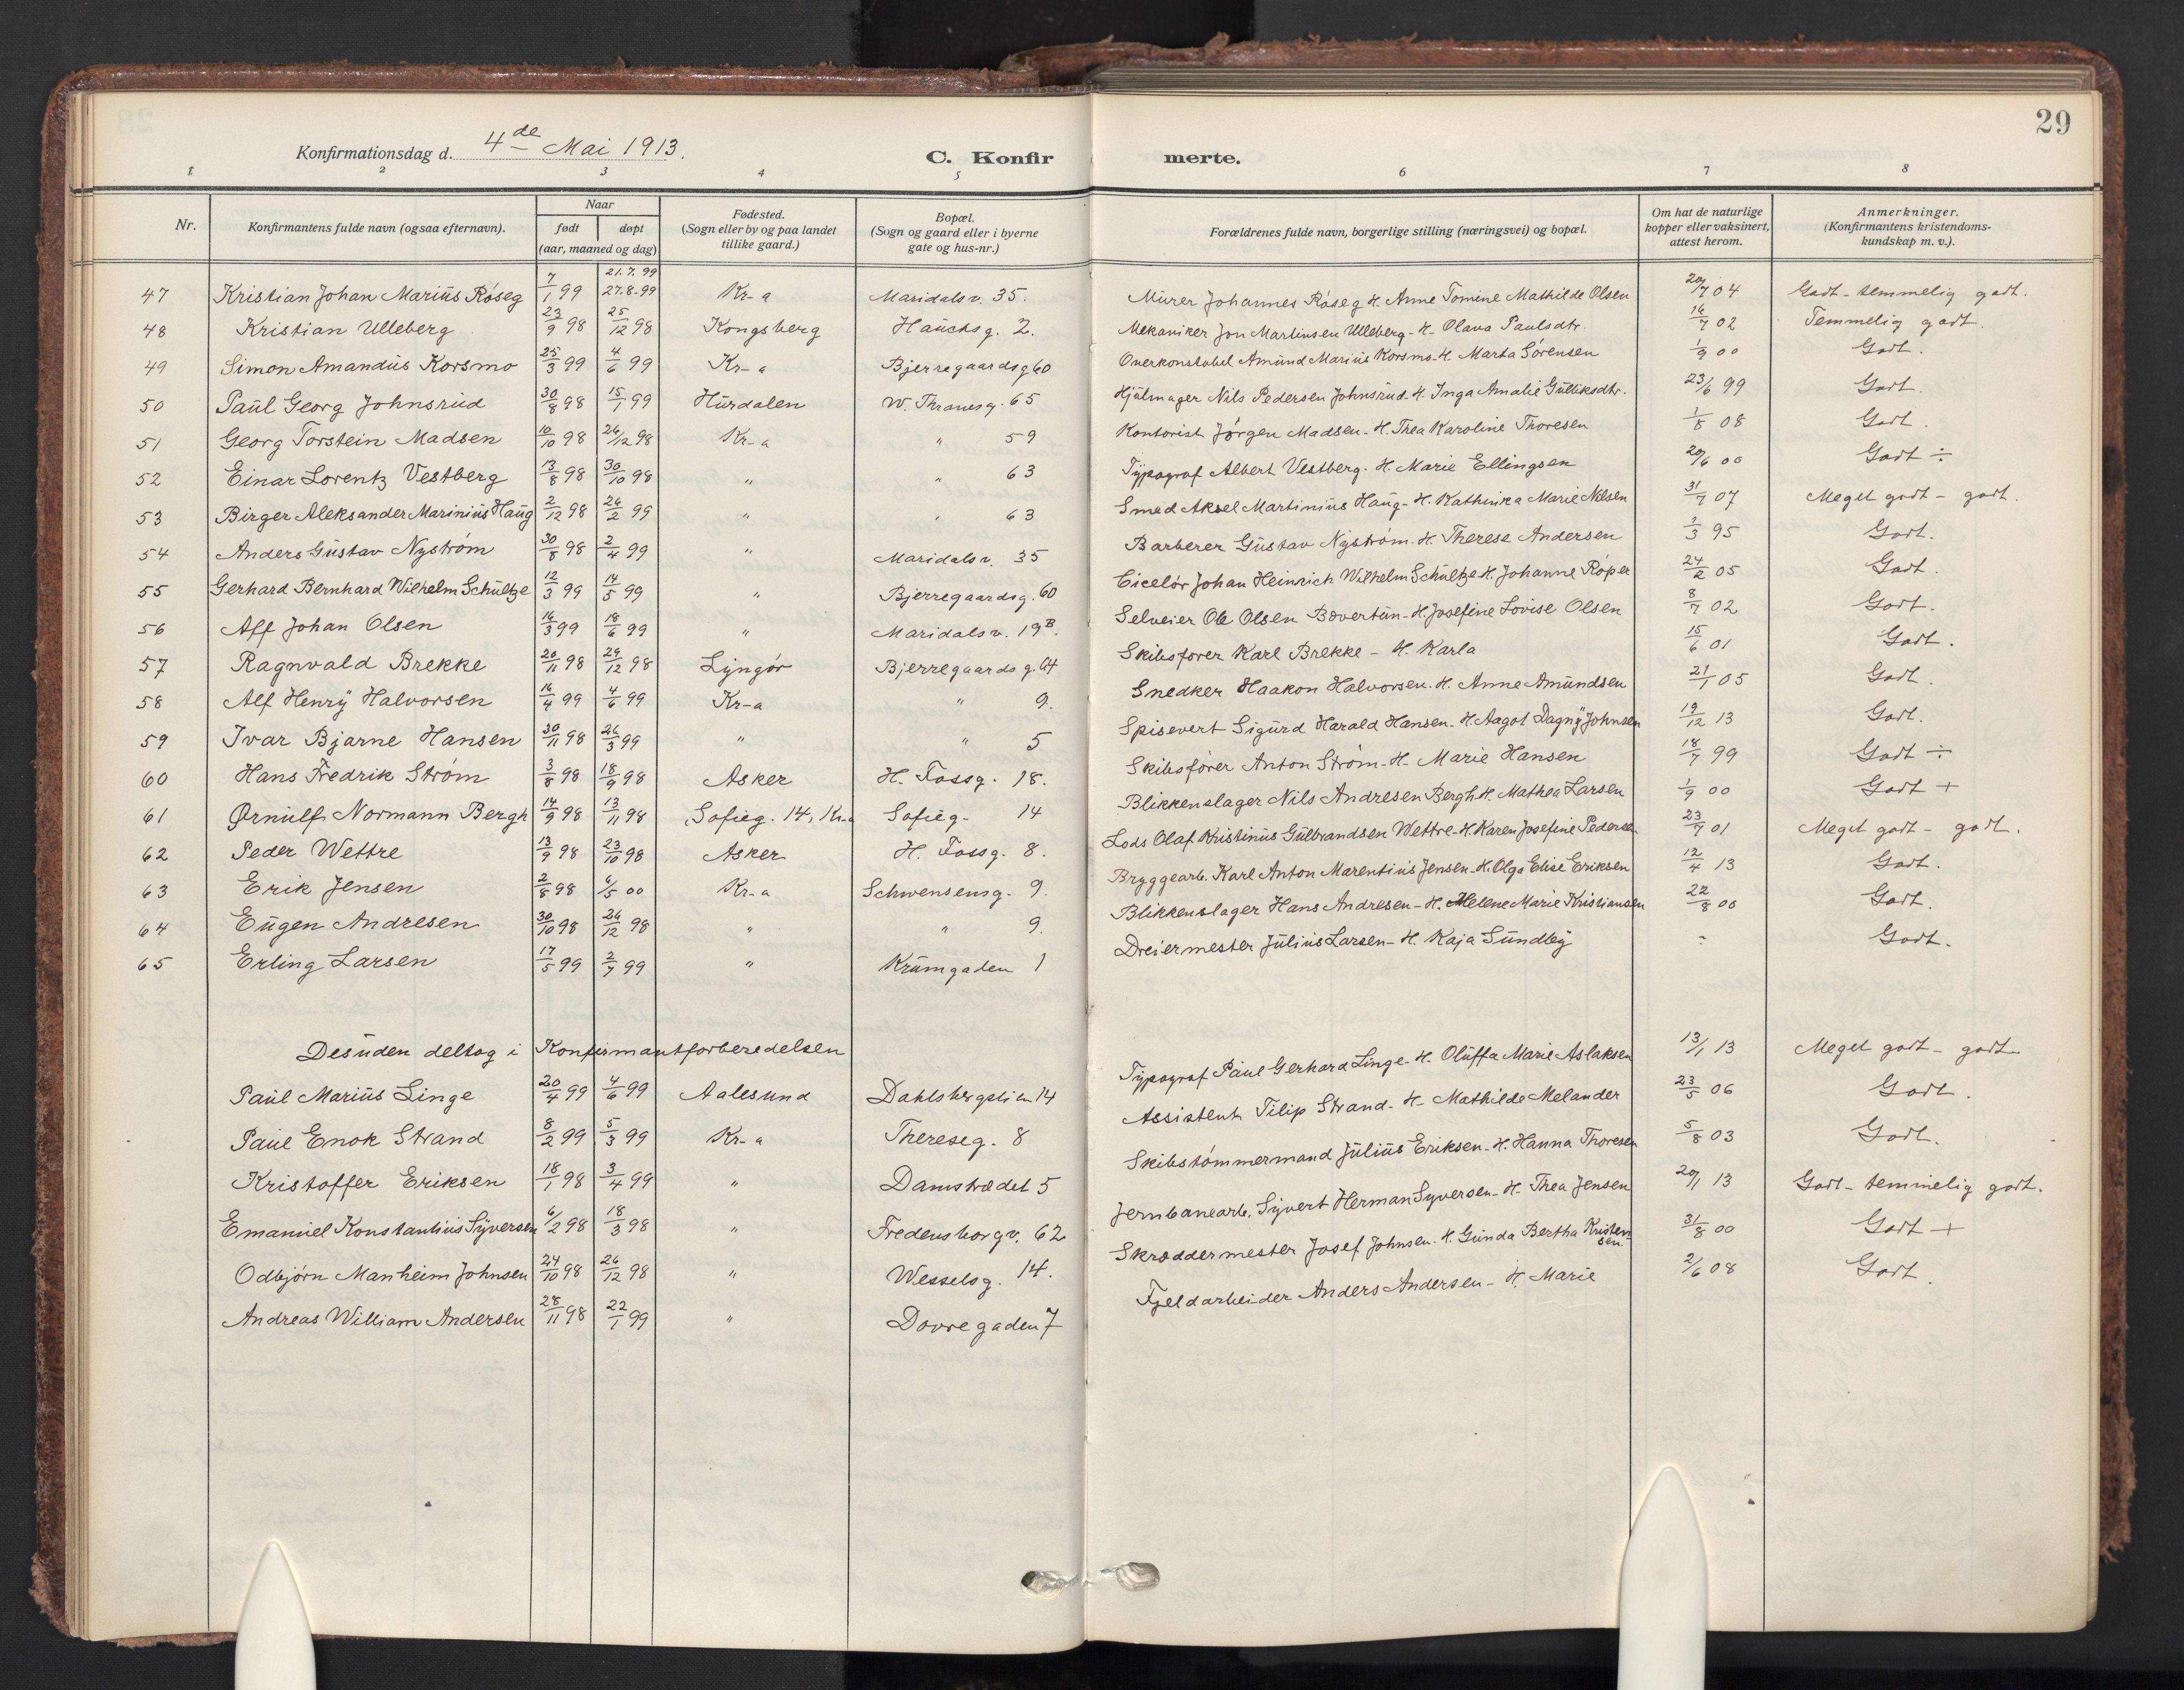 29
Konfirmationsdag d. 4de Mai 1913.
C. Konfir merte.
1 2 3 4 5 6 7 8
Nr. Konfirmantens fulde navn (ogsaa efternavn). Naar født døpt (aar, maaned og dag) Fødested. (Sogn eller by og paa landet tillike gaard.) Bopæl. (Sogn og gaard eller i byerne gate og hus-nr.) Forældrenes fulde navn, borgerlige stilling (næringsvei) og bopæl. Om hat de naturlige kopper eller vaksinert, attest herom. Anmerkninger. (Konfirmantens kristendoms-kundskap m. v.).
47 Kristian Johan Marius Röseg 7/1 99 21.7.99 27.8.99 Kr-a Maridalsv. 35. Murer Johannes Röseg H. Anne Tomine Mathilde Olsen 20/7 04 Godt - temmelig godt.
48 Kristian Ulleberg 23/9 98 25/12 98 Kongsberg Hauchsg. 2. Mekaniker Jon Martinsen Ulleberg - H. Olava Paulsdtr. 16/7 02 Temmelig godt.
49 Simon Amandus Korsmo 25/3 99 4/6 99 Kr-a Bjerregaardsg 60 Overkonstabel Amund Marius Korsmo. H. Marta Sörensen 1/9 00 Godt.
50 Paul Georg Johnsrud 30/8 98 15/1 99 Hurdalen W. Thranesg. 65 Hjulmager Nils Pedersen Johnsrud. H. Inga Amalie Gulliksdtr. 23/6 99 Godt.
51 Georg Torstein Madsen 10/10 98 26/12 98 Kr-a " 59 Kontorist Jörgen Madsen - H. Thea Karoline Thoresen 1/8 08 Godt.
52 Einar Lorentz Vestberg 13/8 98 30/10 98 " " 63 Typograf Albert Vestberg. H. Marie Ellingsen 20/6 00 Godt ÷
53 Birger Aleksander Marinius Haug 2/12 98 26/2 99 " " 63 Smed Aksel Martinius Haug - H. Kathinka Marie Nilsen 31/7 07 Meget godt - godt.
54 Anders Gustav Nyström 30/8 98 2/4 99 " Maridalsv. 35 Barberer Gustav Nyström. H. Therese Andersen 1/3 95 Godt.
55 Gerhard Bernhard Wilhelm Schultze 12/3 99 14/5 99 " Bjerregaardsg. 60 Ciselör Johan Heinrich Wilhelm Schultze H. Johanne Röper 24/2 05 Godt.
56 Alf Johan Olsen 16/3 99 18/6 99 " Maridalsv. 19B. Selveier Ole Olsen Bövertun - H. Josefine Lovise Olsen 8/7 02 Godt.
57 Ragnvald Brekke 20/11 98 29/12 98 Lyngör Bjerregaardsg. 64 Skibsförer Karl Brekke - H. Karla 15/6 01 Godt.
58 Alf Henry Halvorsen 16/4 99 4/6 99 Kr-a " 9. Snedker Haakon Halvorsen. H. Anne Amundsen 21/1 05 Godt.
59 Ivar Bjarne Hansen 30/11 98 26/3 99 " " 5 Spisevert Sigurd Harald Hansen - H. Aagot Dagny Johnsen 19/12 13 Godt.
60 Hans Fredrik Ström 3/8 98 18/9 98 Asker H. Fossg. 18. Skibsförer Anton Ström - H. Marie Hansen 18/7 99 Godt ÷
61 Ørnulf Normann Bergh 14/9 98 13/11 98 Sofieg. 14, Kr-a Sofieg- 14 Blikkenslager Nils Andresen Bergh. H. Mathea Larsen 1/9 00 Godt +
62 Peder Wettre 13/9 98 23/10 98 Asker H. Fossg. 8. Lods Olaf Kristinus Gulbrandsen Wettre - H. Karen Josefine Pedersen 23/7 01 Meget godt - godt.
63 Erik Jensen 2/8 98 6/5 00 Kr-a Schwensensg. 9. Bryggearb. Karl Anton Marentius Jensen - H. Olga Elise Eriksen 12/4 13 Godt.
64 Eugen Andresen 30/10 98 26/12 98 " " 9. Blikkenslager Hans Andresen - H. Helene Marie Kristiansen 22/8 00 Godt.
65 Erling Larsen 17/5 99 2/7 99 " Krumgaden 1 Dreiermester Julius Larsen - H. Kaja Sundby ÷ Godt.
Desuden deltog i Konfirmantforberedelsen
Paul Marius Linge 20/4 99 4/6 99 Aalesund Dahlsbergstien 14 Typograf Paul Gerhard Linge - H. Oluffa Marie Aslaksen 13/1 13 Meget godt - godt
Paul Enok Strand 8/2 99 5/3 99 Kr-a Thereseg. 8 Assistent Filip Strand - H. Mathilde Melander 23/5 06 Godt.
Kristoffer Eriksen 18/1 98 3/4 99 " Damstrædet 5 Skibstömmermand Julius Eriksen - H. Hanna Thoresen 5/8 03 Godt.
Emanuel Konstantius Syversen 6/2 98 18/3 98 " Fredensborgv. 62 Jernbanearb. Syvert Herman Syversen - H. Thea Jensen 20/1 13 Godt - temmelig godt.
Odbjörn Manheim Johnsen 24/10 98 26/12 98 " Wesselsg. 14. Skræddermester Josef Johnsen. H. Gunda Bertha Kristensen. 31/8 00 Godt +
Andreas William Andersen 28/11 98 22/1 99 " Dovregaden 7 Fjeldarbeider Anders Andersen - H. Marie 2/6 08 Godt.